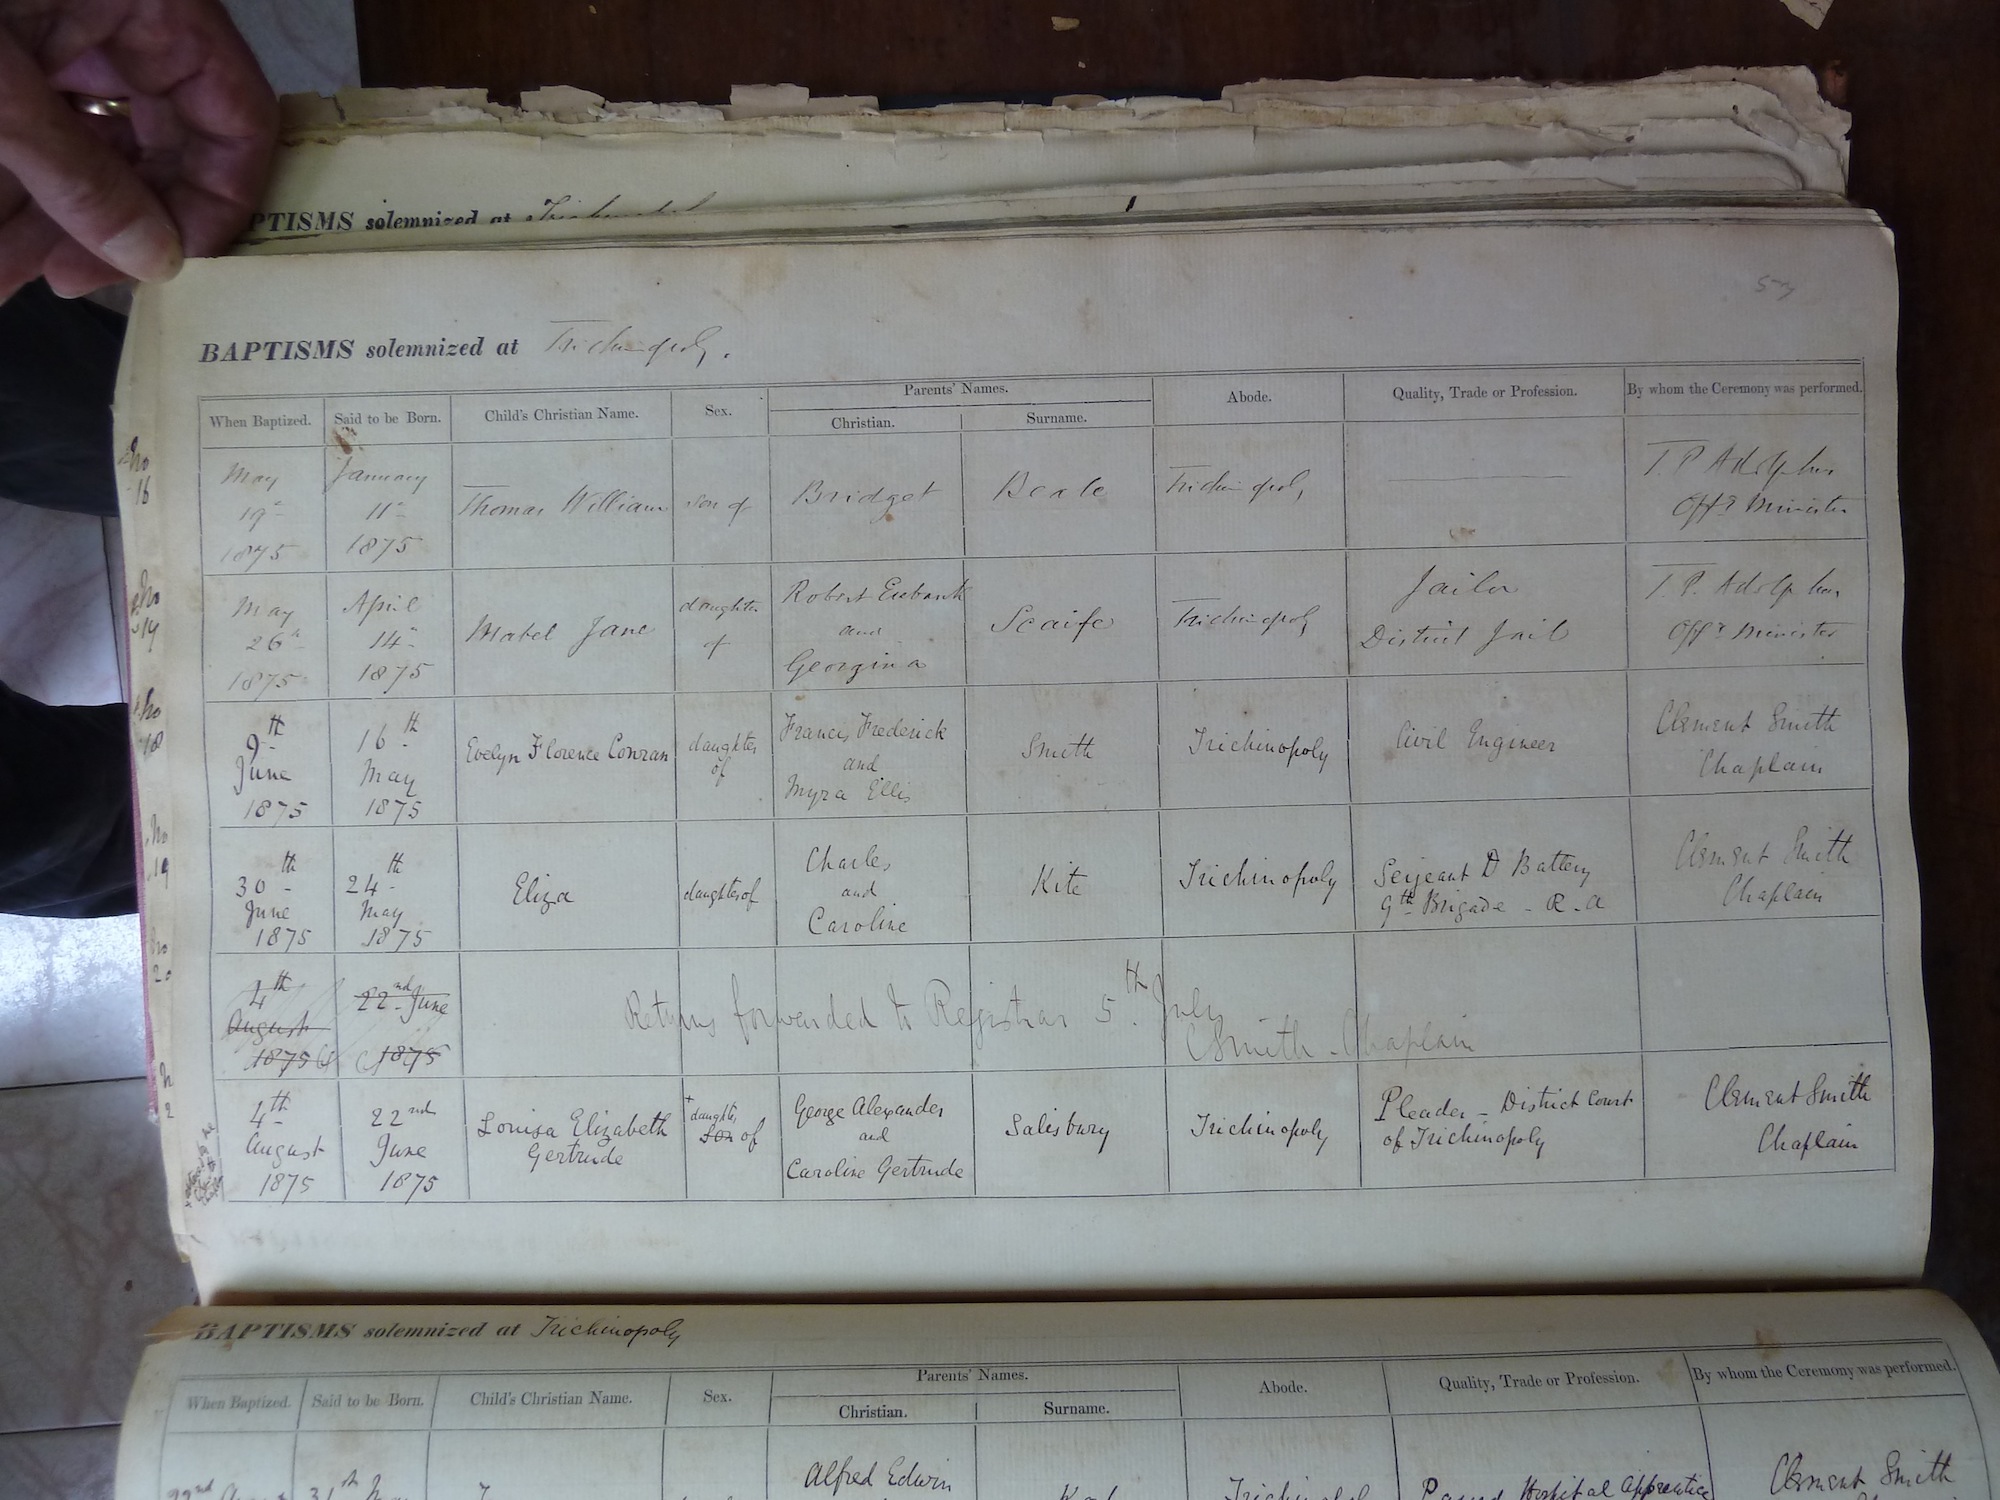 BAPTISMS solemnized at
57
BAPTISMS solemnized at Trichinopoly.
When Baptized. Said to be Born. Child's Christian Name. Sex. Parents' Names. Christian. Surname. Abode. Quality, Trade or Profession. By whom the Ceremony was performed.
No 16
May 19th 1875 January 11th 1875 Thomas William son of Bridget Beale Trichinopoly T. P. Adolphus Offg Minister
No 17
May 26th 1875 April 14th 1875 Mabel Jane daughter of Robert Eubank and Georgina Scaife Trichinopoly Jailor District Jail T. P. Adolphus Offg Minister
No 18
9th June 1875 16th May 1875 Evelyn Florence Conran daughter of Francis Frederick and Myra Ellis Smith Trichinopoly Civil Engineer Clement Smith Chaplain
No 19
30th June 1875 24th May 1875 Eliza daughter of Charles and Caroline Kite Trichinopoly Serjeant D Battery 9th Brigade - R.A Clement Smith Chaplain
No 20
4th August 1875 22nd June 1875
Returns forwarded to Registrar 5th July
CSmith - Chaplain
4th August 1875 22nd June 1875 Louisa Elizabeth Gertrude daughter Son of George Alexander and Caroline Gertrude Salisbury Trichinopoly Pleader - District Court of Trichinopoly Clement Smith Chaplain
BAPTISMS solemnized at Trichinopoly
When Baptized. Said to be Born. Child's Christian Name. Sex. Parents' Names. Christian. Surname. Abode. Quality, Trade or Profession. By whom the Ceremony was performed.
Alfred Edwin Hospital Apprentice Clement Smith